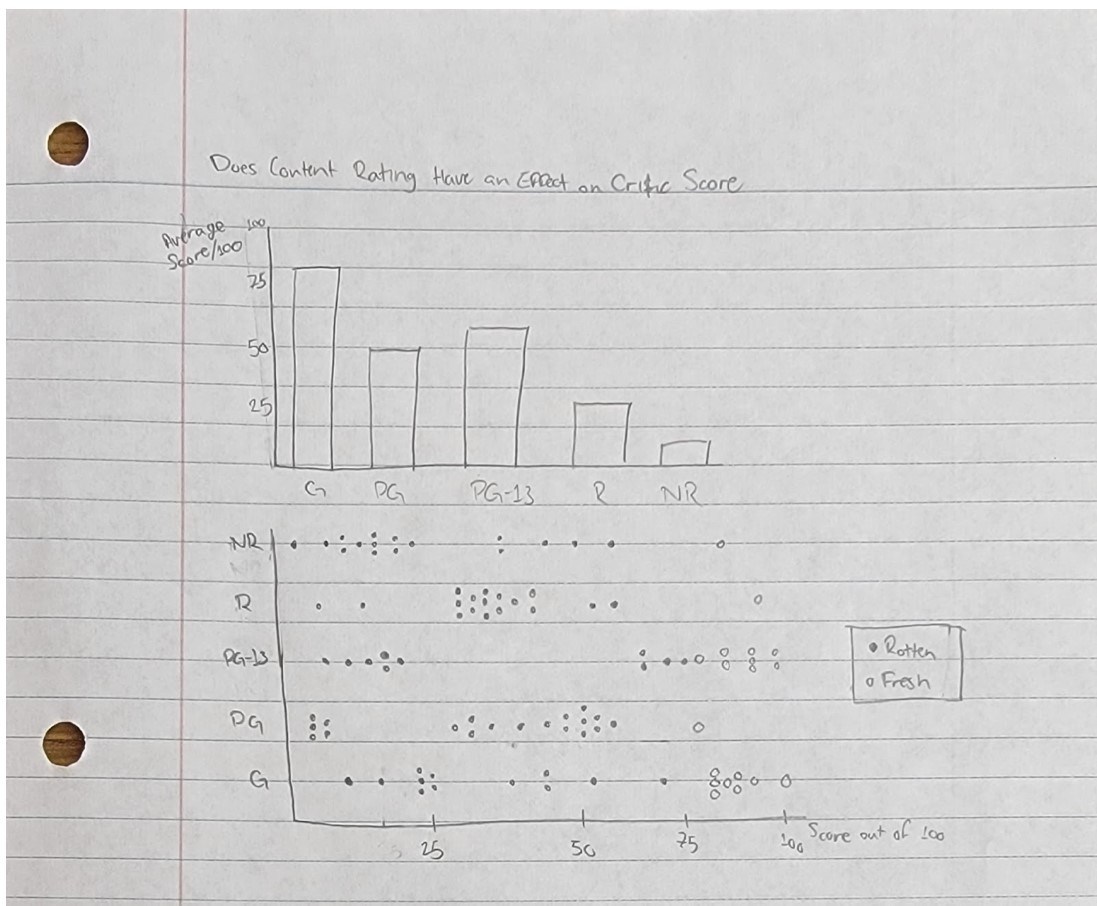 Does Content Rating Have an Effect on Critic Score
Average
Score/100
100
75
50
25
G PG PG-13 R NR
NR
R
PG-13
PG
G
Rotten
Fresh
25 50 75 100 Score out of 100